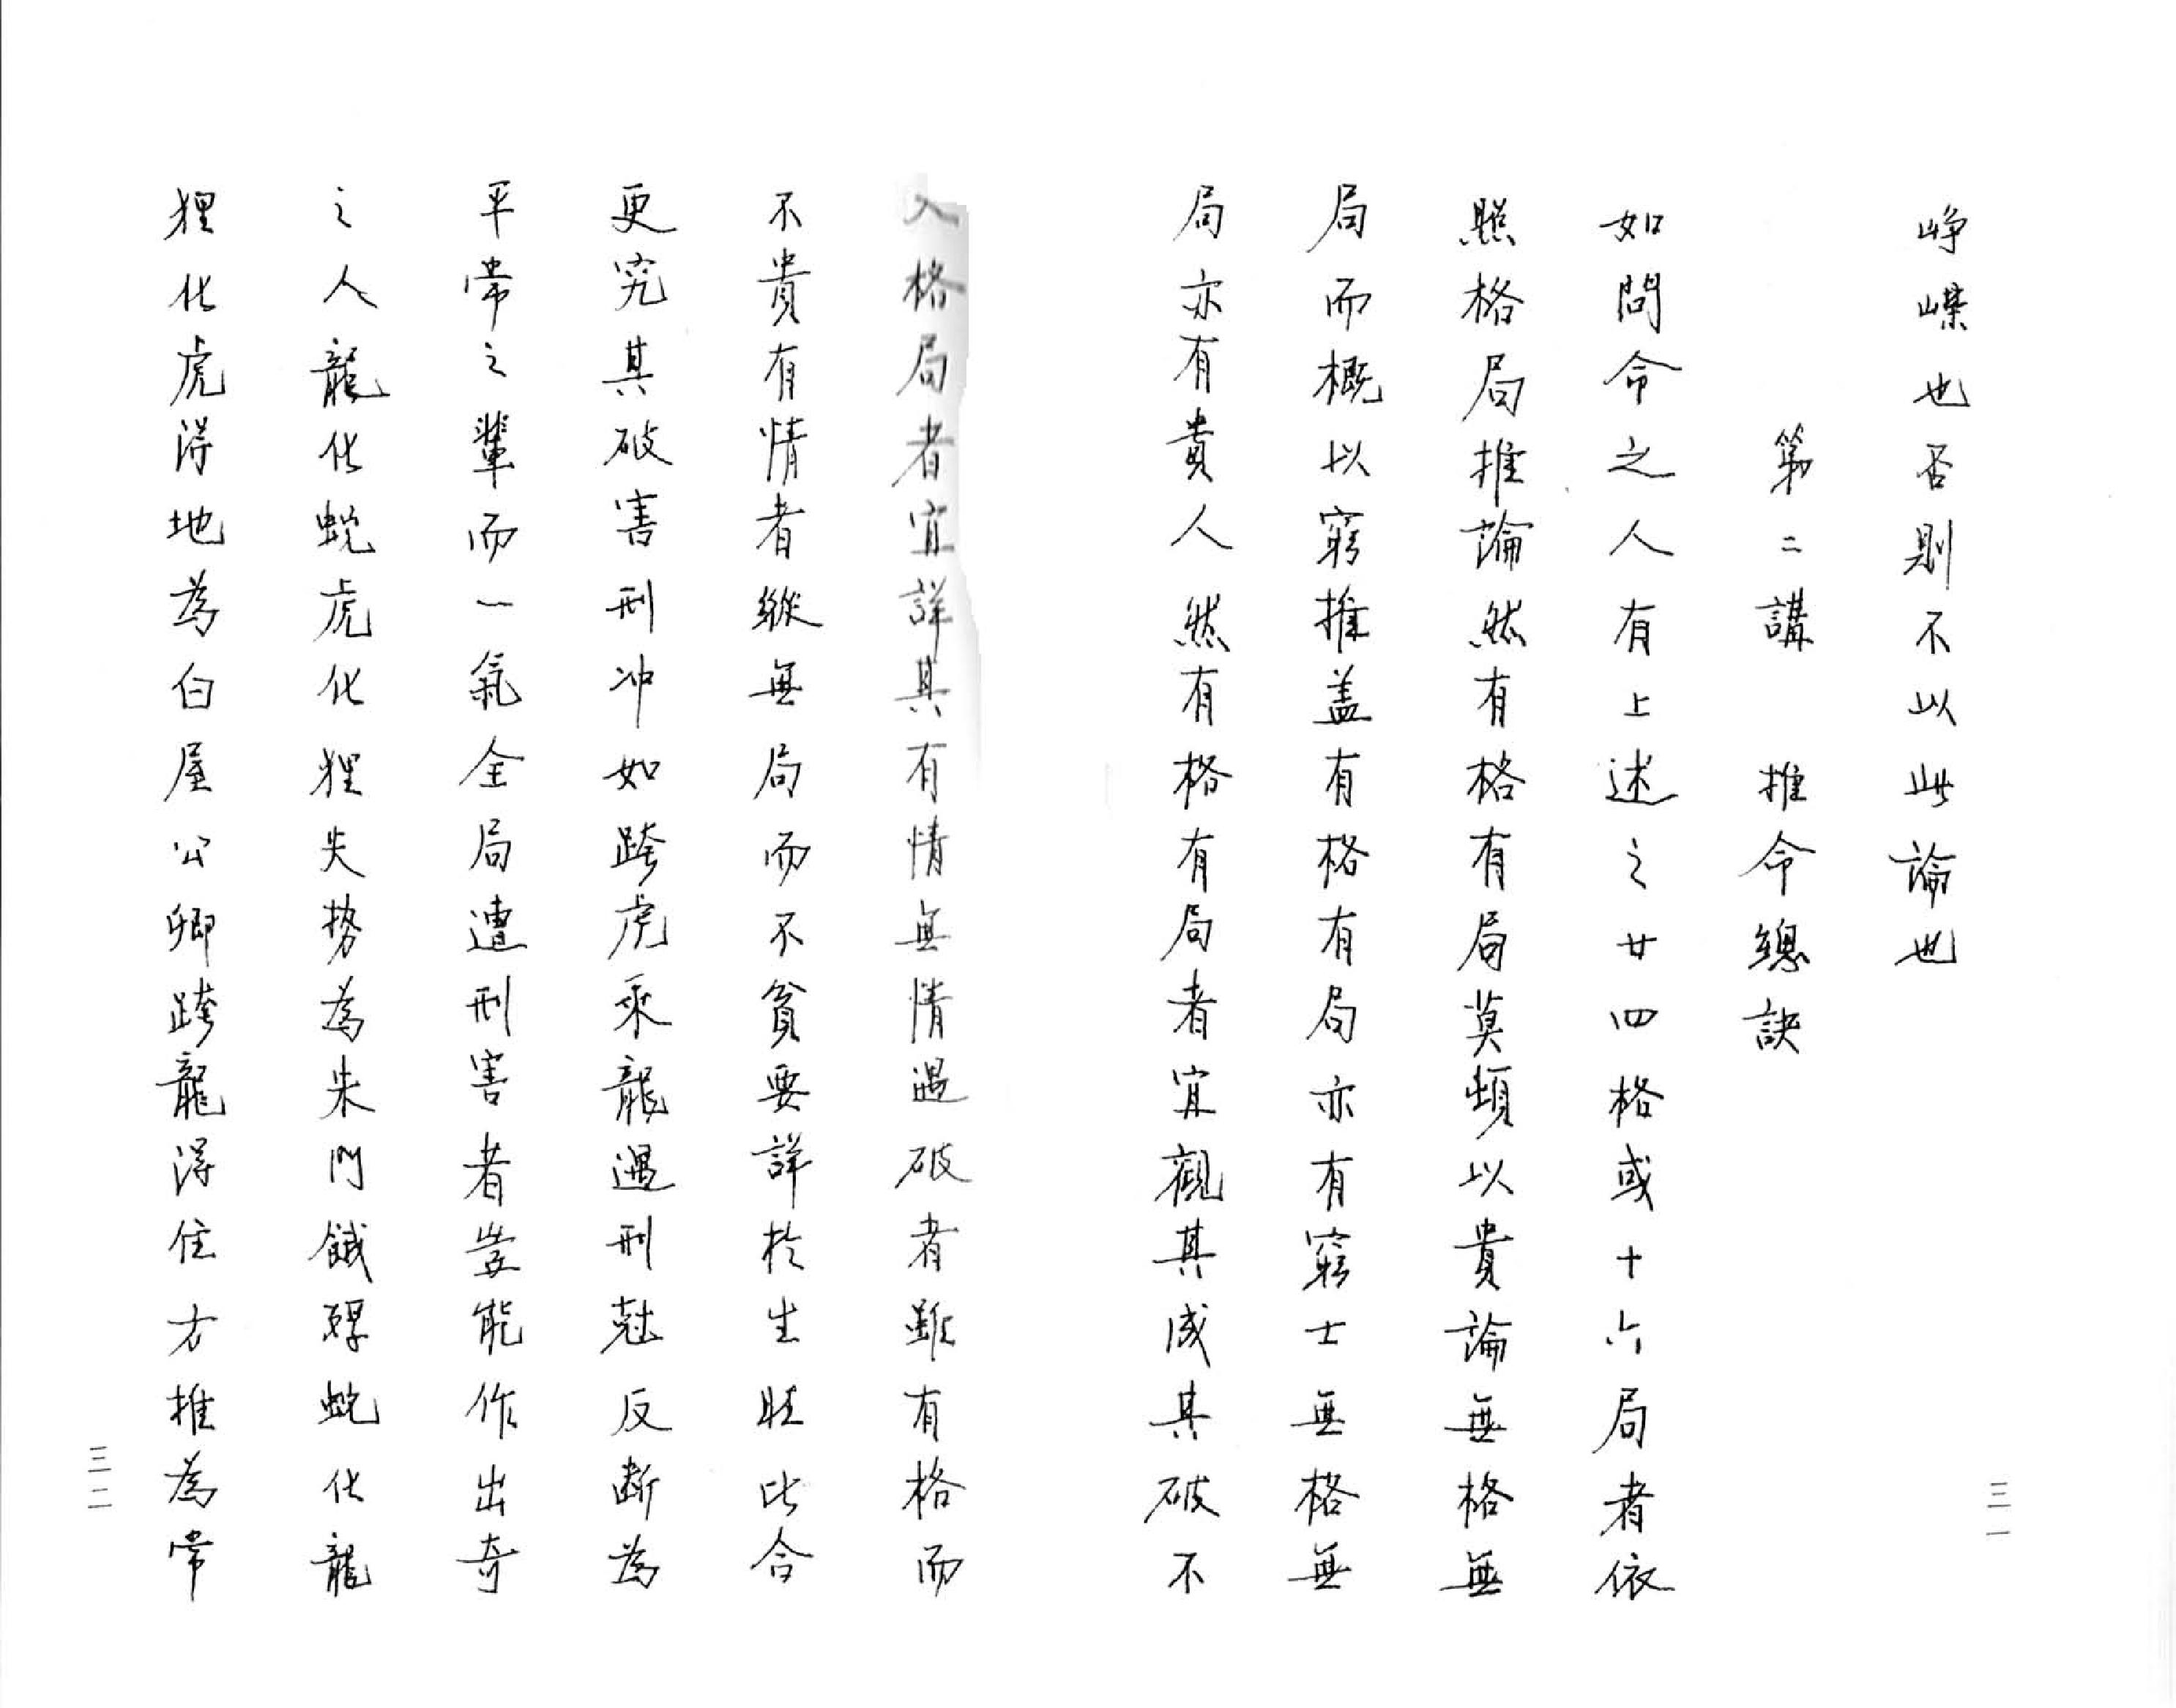 崢嶸也否則不以此論也
第二講 推命總訣
如問命之人有上述之廿四格或十六局者依
照格局推論然有格有局莫頓以貴論無格無
局而概以窮推蓋有格有局亦有窮士無格無
局亦有貴人然有格有局者宜觀其成其破不
入格局者宜詳其有情無情遇破者雖有格而
不貴有情者縱無局而不貧要詳於生旺比合
更究其破害刑冲如跨虎乘龍遇刑尅反斷為
平常之輩而一氣全局遭刑害者豈能作出奇
之人龍化蛇虎化狸失勢為朱門餓殍蛇化龍
狸化虎得地為白屋公卿跨龍得住方推為常
三一
三二